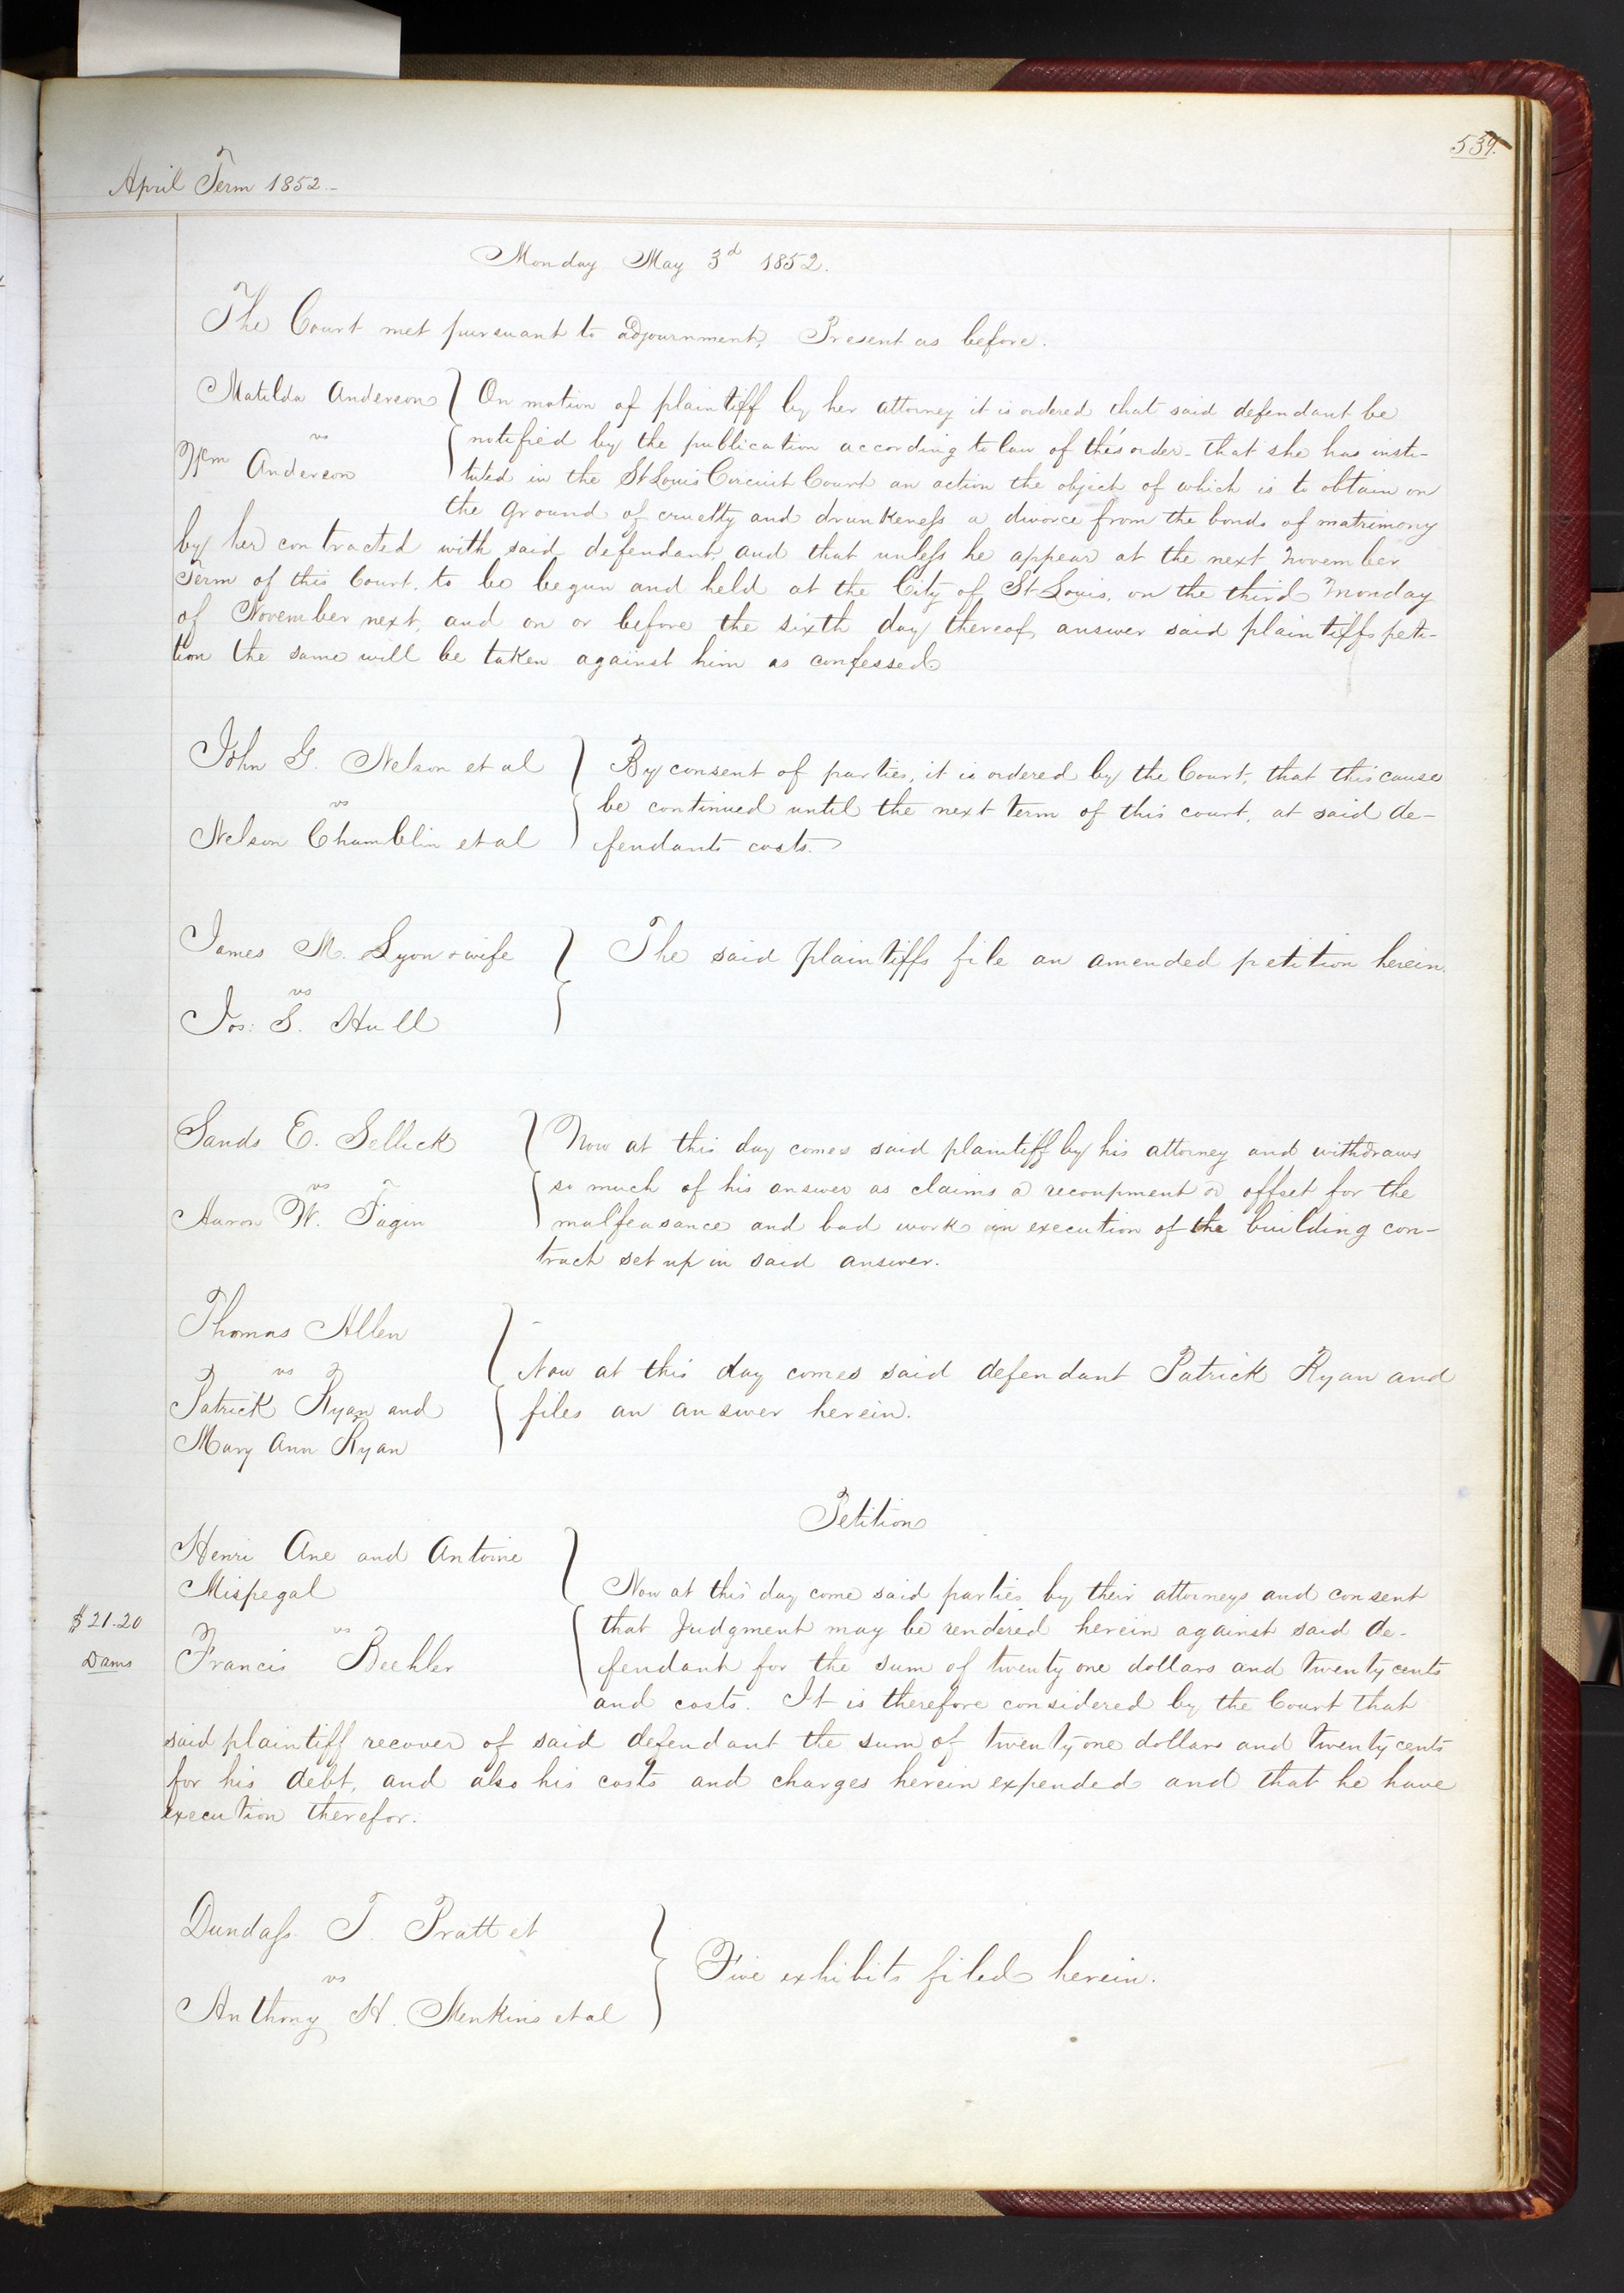 539.
April Term 1852.-
Monday May 3d 1852.
The Court met pursuant to adjournment, Present as before.
Matilda Anderson
vs
Wm Anderson
On motion of plaintiff by her attorney it is ordered that said defendant be
notified by the publication according to law of this order - that she has insti-
tuted in the St Louis Circuit Court an action the object of which is to obtain on
the ground of cruelty and drunkeness a divorce from the bonds of matrimony
by her contracted with said defendant, and that unless he appear at the next November
Term of this Court, to be begun and held at the City of St Louis, on the third Monday
of November next, and on or before the sixth day thereof, answer said plaintiffs peti-
tion the same will be taken against him as confessed
John G. Nelson et al
vs
Nelson Chamblin et al
By consent of parties, it is ordered by the Court, that this cause
be continued until the next term of this court, at said de-
fendants costs.
James M. Lyon & wife
vs
Jos: S. Hull
The said plaintiffs file an amended petition herein.
Sands E. Sellick
vs
Aaron W. Fagin
Now at this day comes said plaintiff by his attorney and withdraws
so much of his answer as claims a recoupment or offset for the
malfeasance and bad work in execution of the building con-
tract set up in said answer.
Thomas Allen
vs
Patrick Ryan and
Mary Ann Ryan
Now at this day comes said defendant Patrick Ryan and
files an answer herein.
Petition
Henri Ane and Antoine
Mispegal
vs
Francis Beehler
$21.20
Dams
Now at this day come said parties by their attorneys and consent
that Judgment may be rendered herein against said de-
fendant for the sum of twenty one dollars and twenty cents
and costs. It is therefore considered by the Court that
said plaintiff recover of said defendant the sum of twenty one dollars and twenty cents
for his debt, and also his costs and charges herein expended and that he have
execution therefor.
Dundass T. Pratt et
vs
Anthony H. Menkins et al
Five exhibits filed herein.